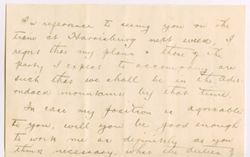 In reference to seeing you on the
train at Harrisburg next week, I
regret that my plans & those of the
party I expect to accompany are
such that we shall be in the Adir-
ondack mountains by that time.
In case my position is agreeable
to you, will you be good enough
to write me as definitely as you
think necessary, what the duties of